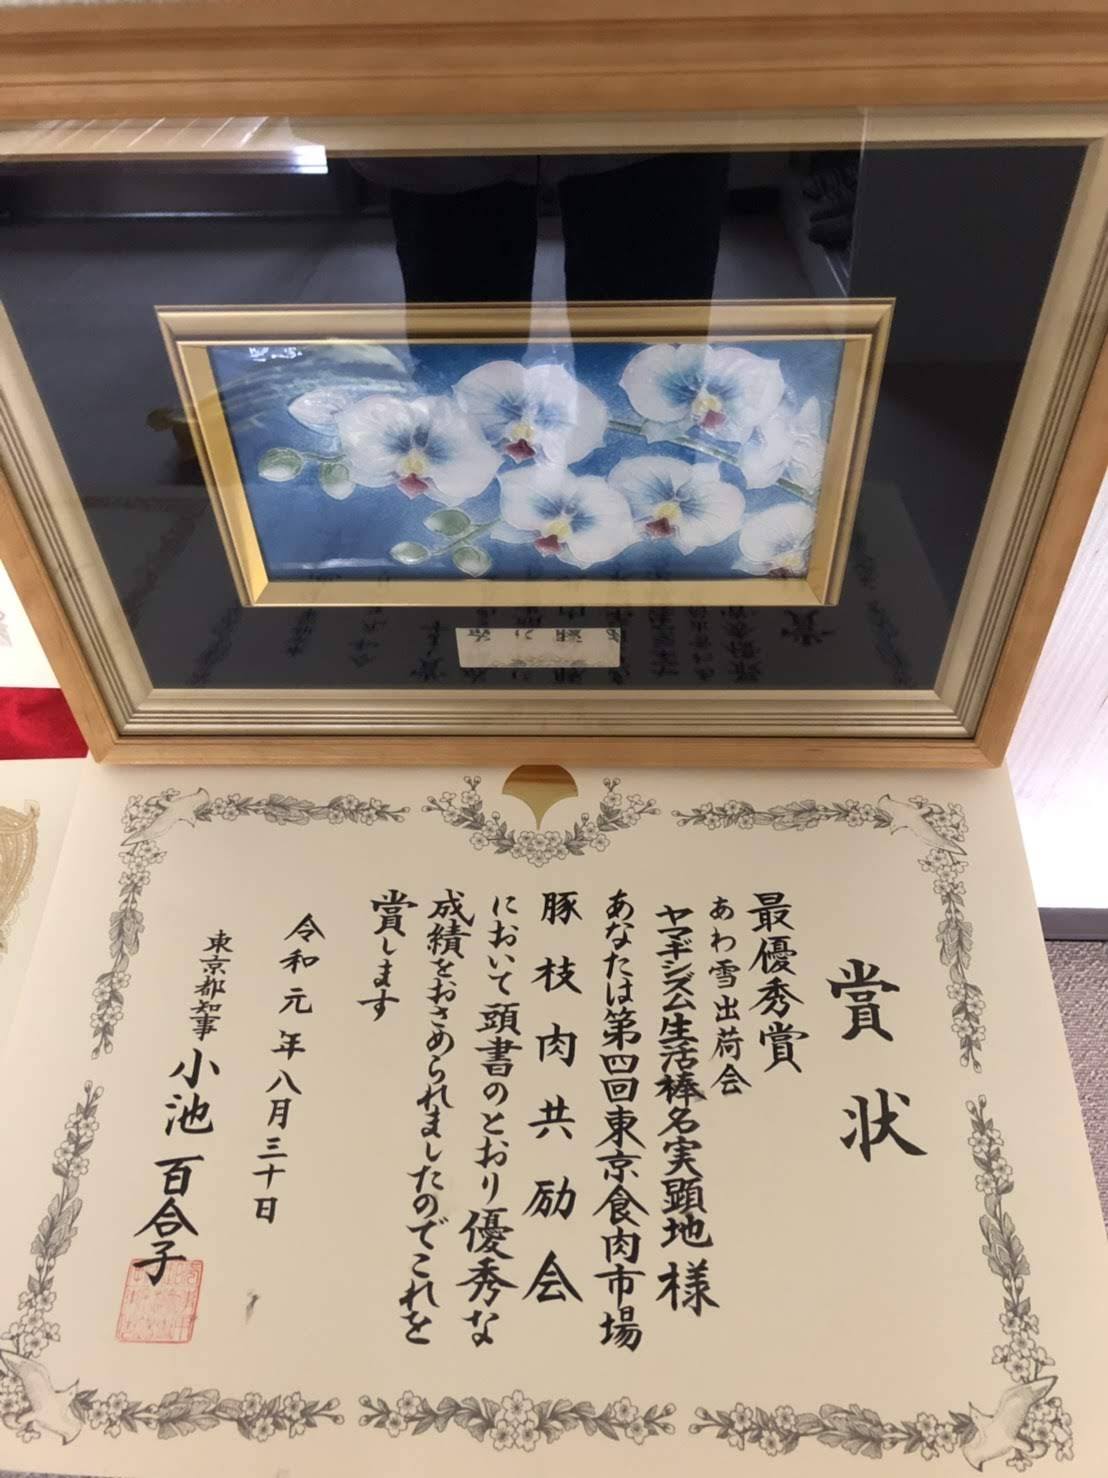 賞状
最優秀賞
あわ雪出荷会
ヤマギシズム生活榛名実顕地様
あなたは第四回東京食肉市場
豚枝肉共励会
において頭書のとおり優秀な
成績をおさめられましたのでこれを
賞します
令和元年八月三十日
東京都知事 小池百合子